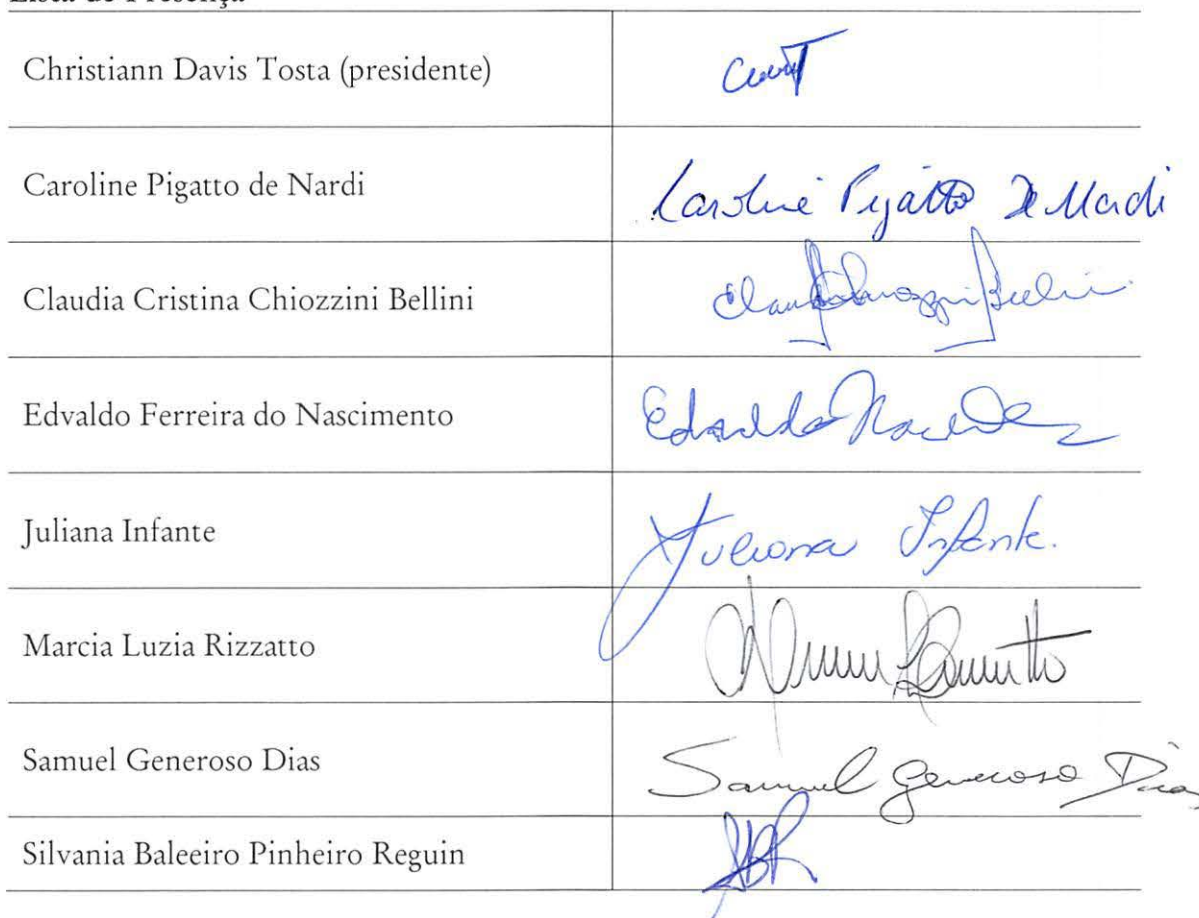 Lista de Presença
Christiann Davis Tosta (presidente)
Caroline Pigatto de Nardi Caroline Pigatto De Nardi
Claudia Cristina Chiozzini Bellini
Edvaldo Ferreira do Nascimento
Juliana Infante Juliana Infante.
Marcia Luzia Rizzatto
Samuel Generoso Dias Samuel Generoso Dias
Silvania Baleeiro Pinheiro Reguin